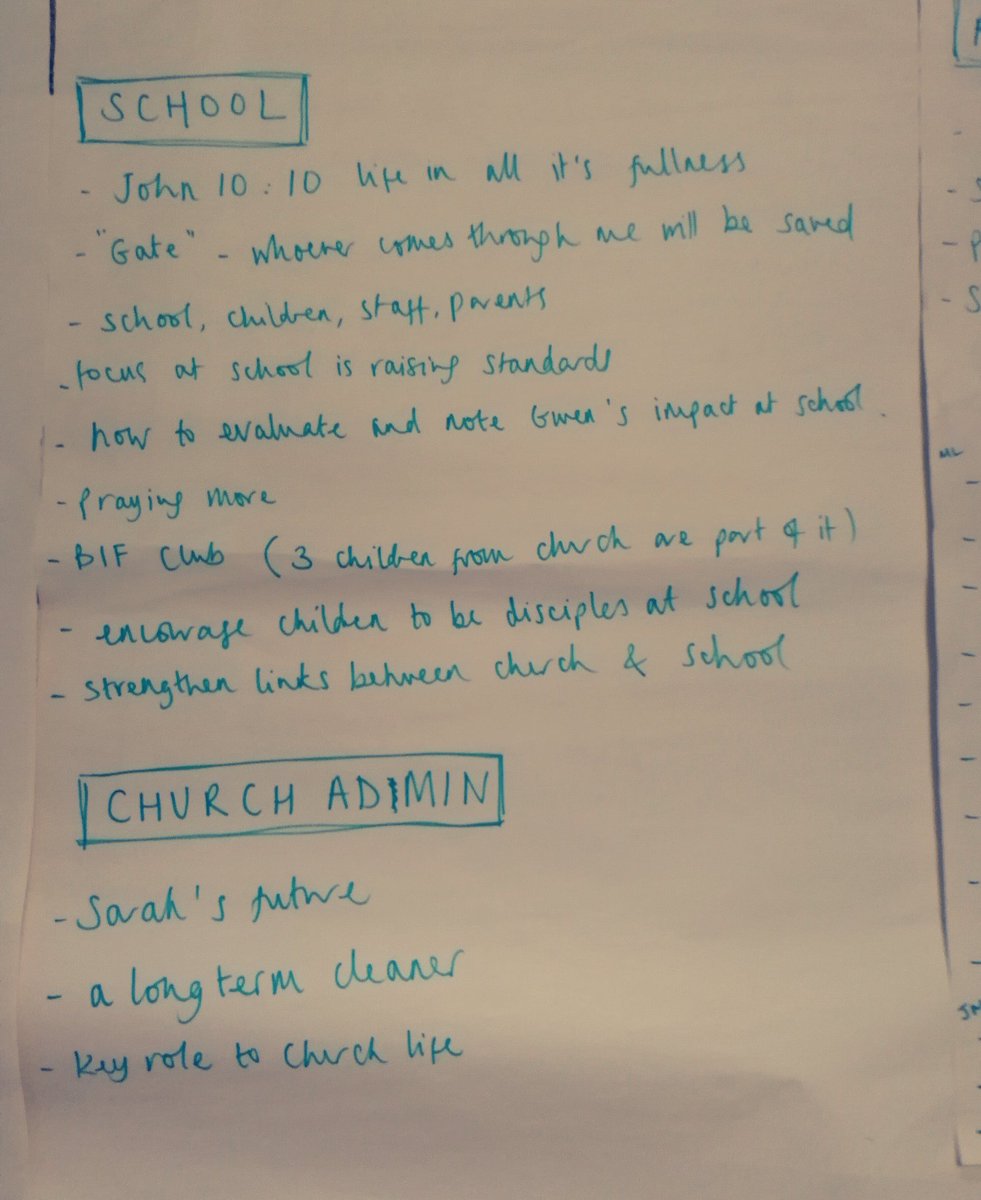 SCHOOL
- John 10:10 life in all it's fullness
- "Gate" - whoever comes through me will be saved
- school, children, staff, parents
- focus at school is raising standards
- how to evaluate and note Gwen's impact at school.
- praying more
- BIF Club (3 children from church are part of it)
- encourage children to be disciples at school
- strengthen links between church & school
CHURCH ADMIN
- Sarah's future
- a long term cleaner
- key role to church life